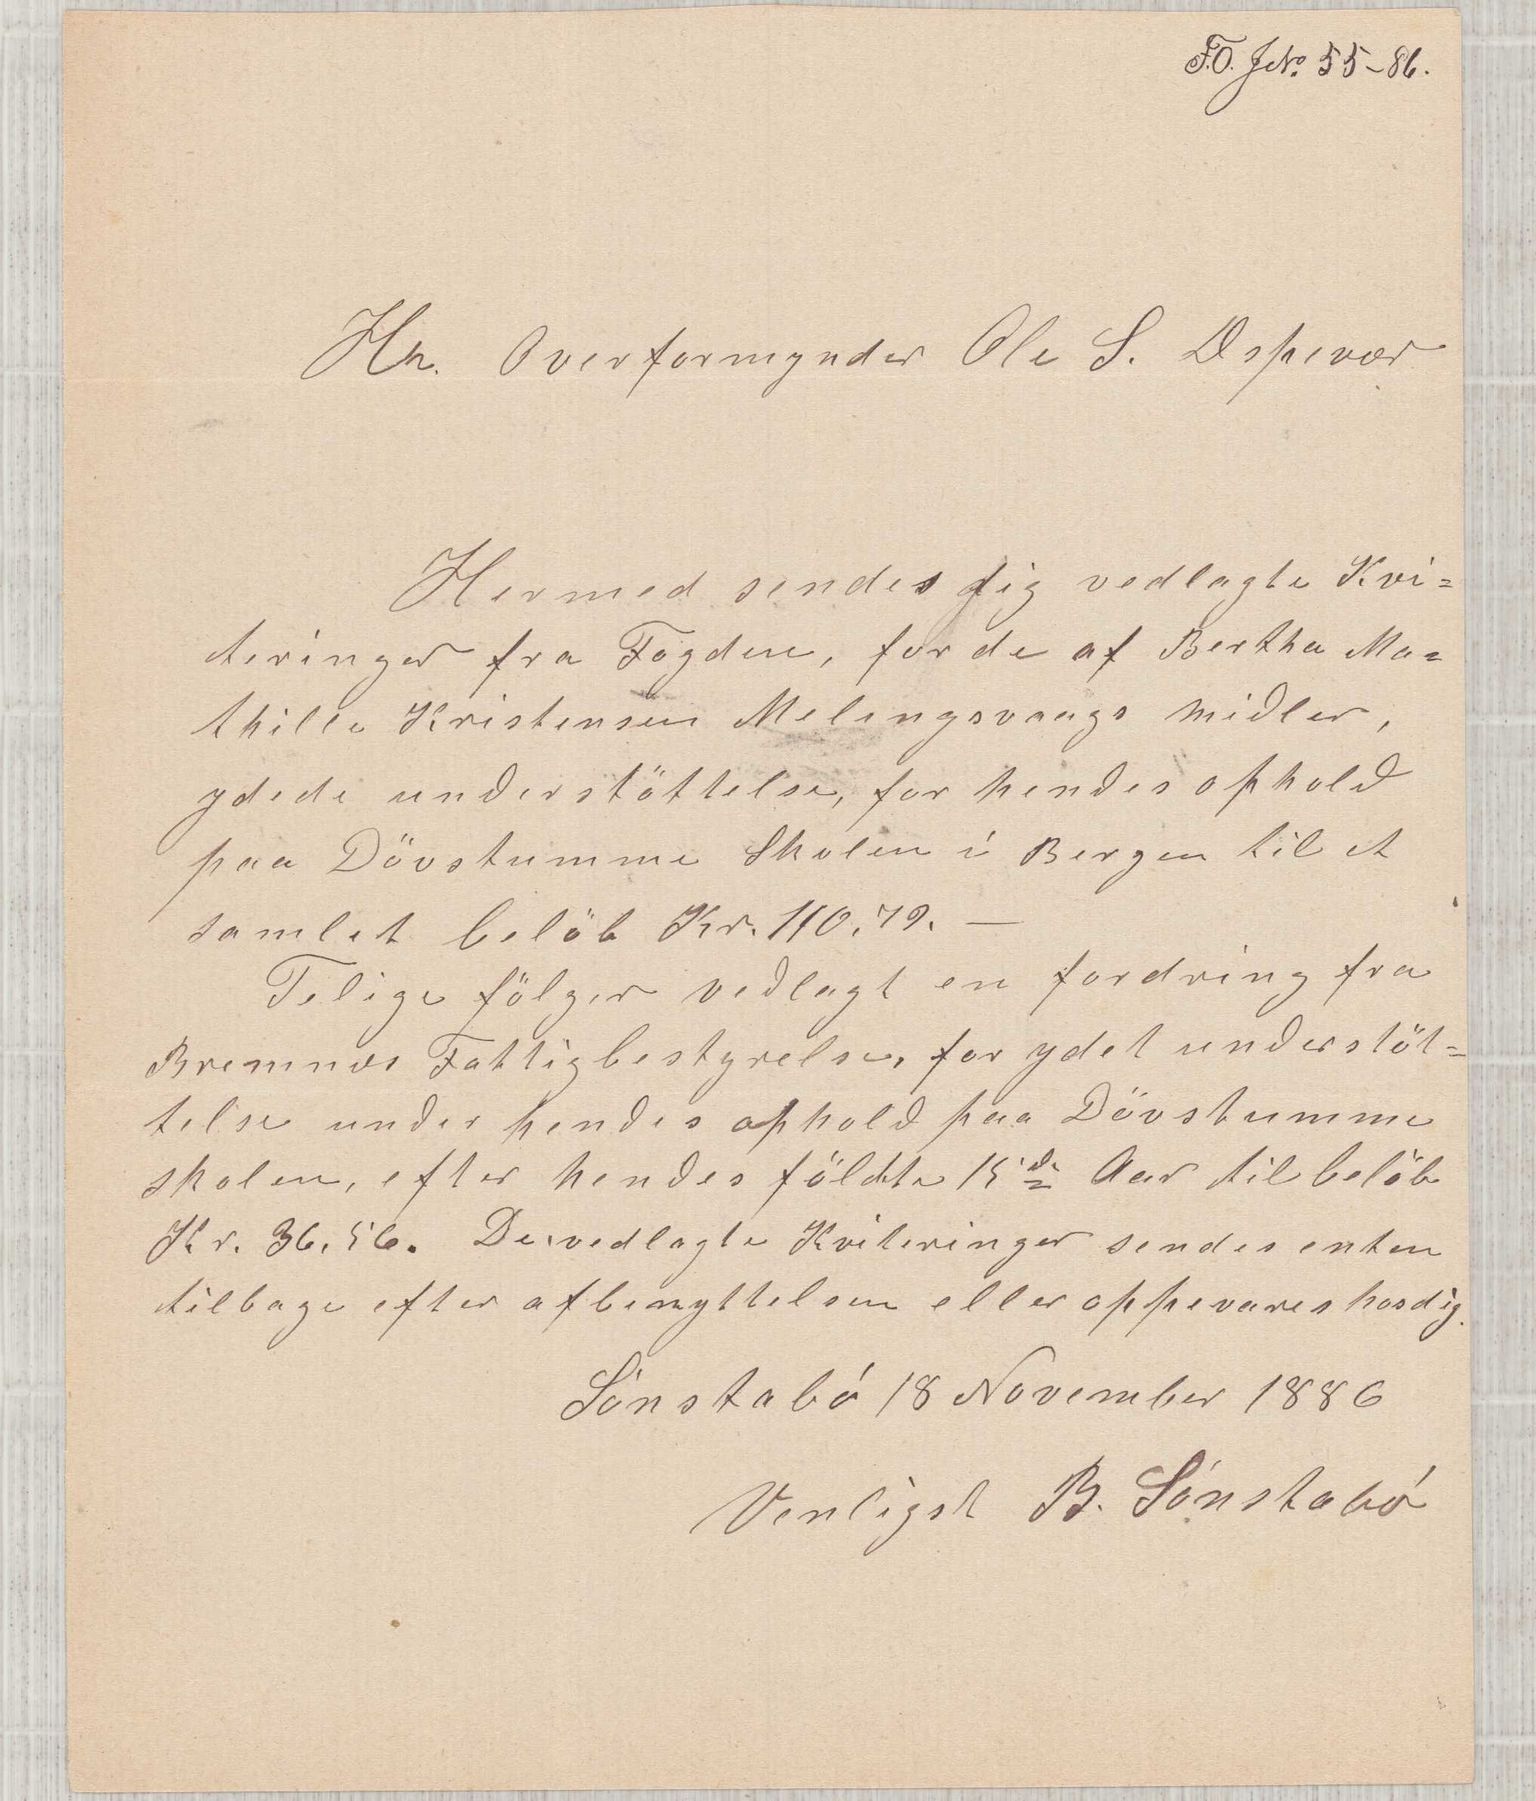 F.O. J.No. 55-86.
Hr. Overformynder Ole S. Espevær
Hermed sendes dig vedlagte Kvi=
teringer fra Fogden, for de af Bertha Ma=
thille Kristensen Melingsvaags midler,
ydede understöttelse, for hendes ophold
paa Dövstumme Skolen i Bergen til et
samlet belöb Kr. 110,79. —
Telige fölger vedlagt en fordring fra
Bremnæs Fattigbestyrelse, for ydet understöt=
telse under hendes ophold paa Dövstumme
skolen, efter hendes földte 15de Aar til belöb
Kr. 36,56. De vedlagte Kviteringer sendes enten
tilbage efter afbenyttelsen eller oppevares hos dig.
Sónstabó 18 November 1886
Venligst B. Sónstabó